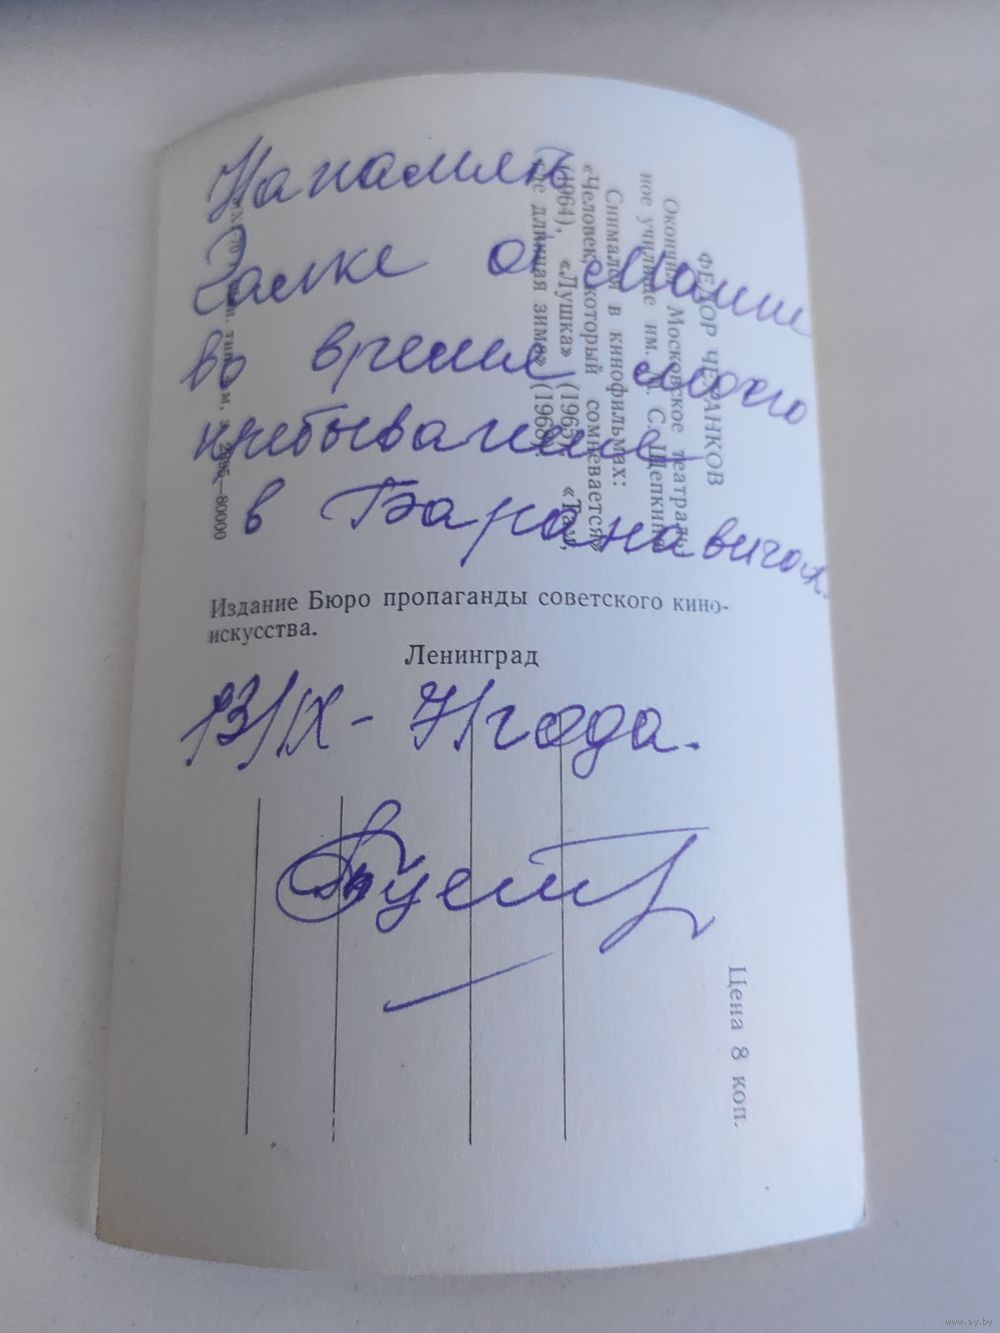 Напамять
Галке от Мани
во время моего
пребывание
в Баранавичах.
13/IX - 71 года.
ФЕДОР ЧЕХАНКОВ
Окончил Московское театраль-
ное училище им. М. С. Щепкина
Снимался в кинофильмах:
«Человек, который сомневается»
(1964), «Лушка» (1965), «Там,
где длинная зима» (1968).
Издание Бюро пропаганды советского кино-
искусства.
Ленинград
80000
Цена 8 коп.
www.ay.by